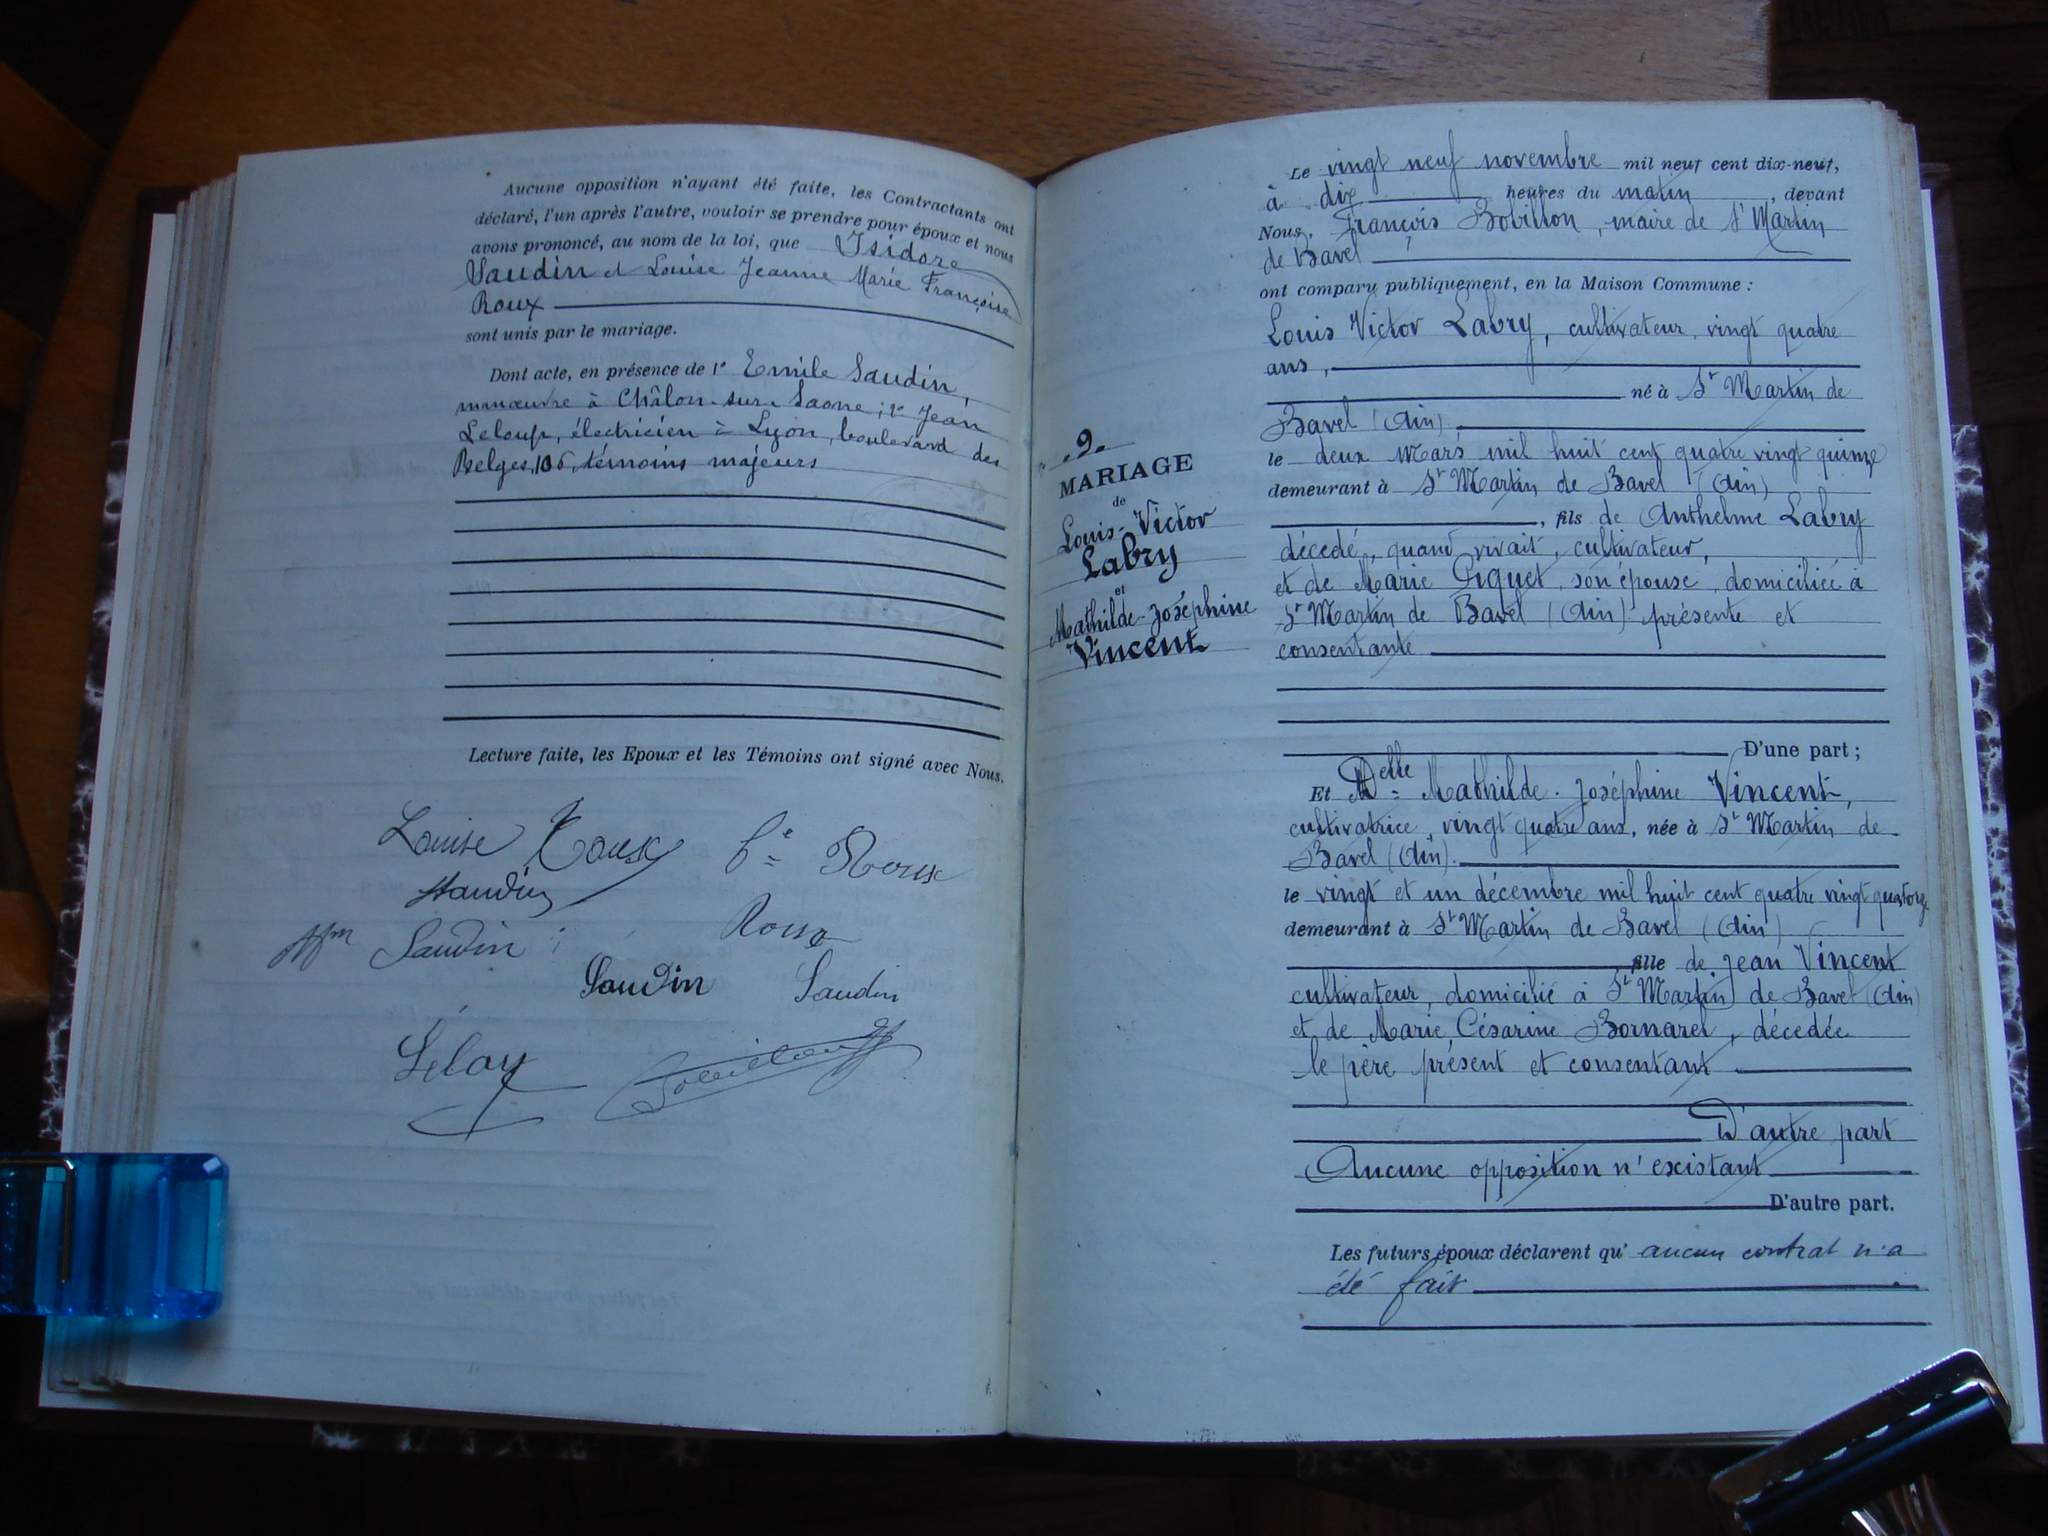 Aucune opposition n'ayant été faite, les Contractants ont
déclaré, l'un après l'autre, vouloir se prendre pour époux et nous
avons prononcé, au nom de la loi, que Isidore
Saudin et Louise Jeanne Marie Françoise
Roux
sont unis par le mariage.
Dont acte, en présence de 1° Emile Saudin,
manœuvre à Châlon-sur-Saone; 2° Jean
Leloup, électricien à Lyon, boulevard des
Belges, 106, témoins majeurs
Lecture faite, les Epoux et les Témoins ont signé avec Nous.
Louise Roux Roux
Saudin
Saudin Roux
Saudin Saudin
9
MARIAGE
de
Louis-Victor
Labry
et
Mathilde-Joséphine
Vincent
Le vingt neuf novembre mil neuf cent dix-neuf,
à dix heures du matin, devant
Nous, François Bovillon, maire de St Martin
de Bavel
ont comparu publiquement, en la Maison Commune :
Louis Victor Labry, cultivateur, vingt quatre
ans,
né à St Martin de
Bavel (Ain)
le deux Mars mil huit cent quatre vingt quinze
demeurant à St Martin de Bavel (Ain)
, fils de Anthelme Labry
décedé, quand vivait, cultivateur,
et de Marie Piquet, son épouse, domiciliée à
St Martin de Bavel (Ain) présente et
consentante
D'une part ;
Et Delle Mathilde-Joséphine Vincent,
cultivatrice, vingt quatre ans, née à St Martin de
Bavel (Ain).
le vingt et un décembre mil huit cent quatre vingt quatorze
demeurant à St Martin de Bavel (Ain)
fille de Jean Vincent
cultivateur, domicilié à St Martin de Bavel (Ain)
et de Marie Césarine Bornarel, décedée
le père présent et consentant
D'autre part
Aucune opposition n'existant
D'autre part.
Les futurs époux déclarent qu' aucun contrat n'a
été fait